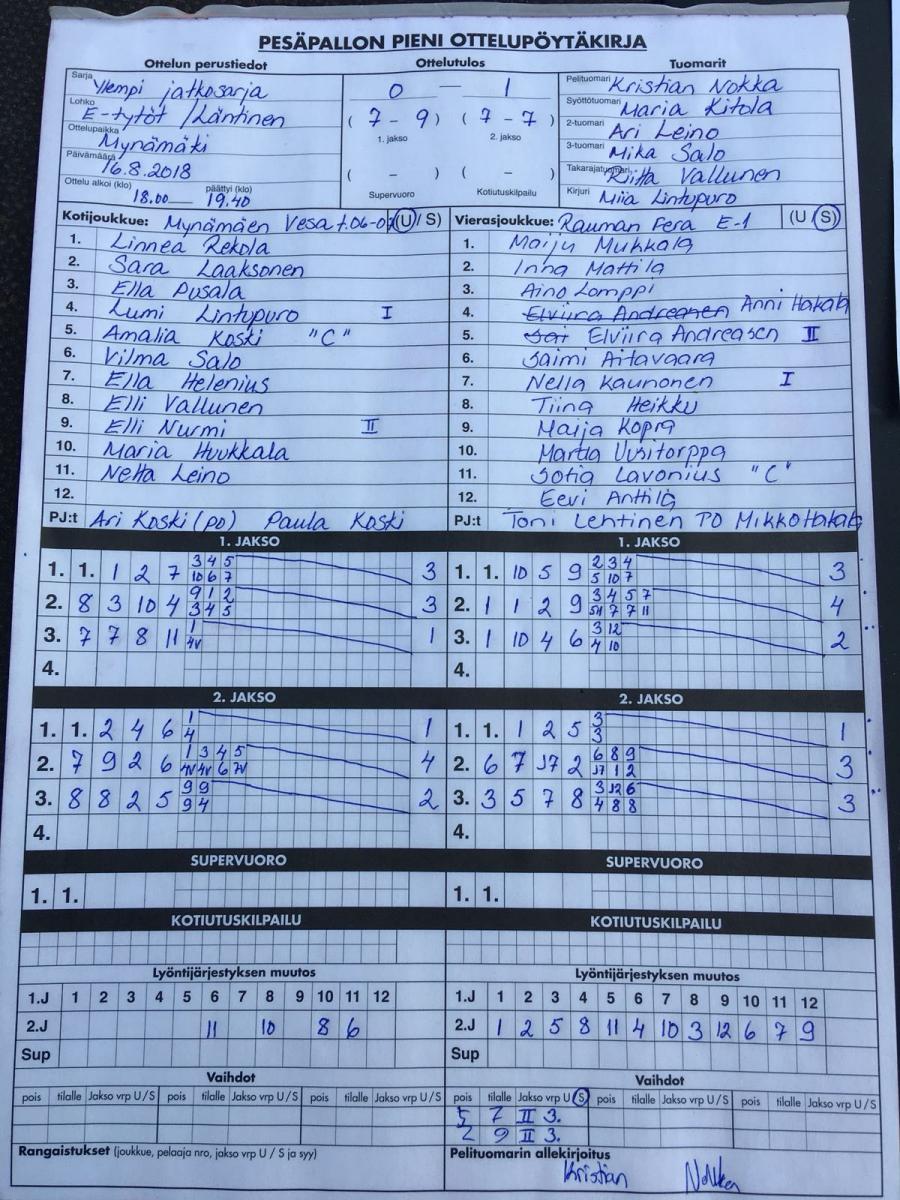 PESÄPALLON PIENI OTTELUPÖYTÄKIRJA
Ottelun perustiedot
Sarja Ylempi jatkosarja
Lohko E-tytöt /Läntinen
Ottelupaikka Mynämäki
Päivämäärä 16.8.2018
Ottelu alkoi (klo) 18.00 päättyi (klo) 19.40
Ottelutulos
0 — 1
( 7 - 9 ) ( 7 - 7 )
1. jakso 2. jakso
( - ) ( - )
Supervuoro Kotiutuskilpailu
Tuomarit
Pelituomari Kristian Nokka
Syöttötuomari Maria Kitola
2-tuomari Ari Leino
3-tuomari Mika Salo
Takarajatuomari Riitta Vallunen
Kirjuri Miia Lintupuro
Kotijoukkue: Mynämäen Vesa t.06-07 (U / S)
1. Linnea Rekola
2. Sara Laaksonen
3. Ella Pusala
4. Lumi Lintupuro I
5. Amalia Koski "C"
6. Vilma Salo
7. Ella Helenius
8. Elli Vallunen
9. Elli Nurmi II
10. Maria Huukkala
11. Netta Leino
12.
PJ:t Ari Koski (PO) Paula Koski
Vierasjoukkue: Rauman Fera E-1 (U / S)
1. Maiju Mukkala
2. Inna Mattila
3. Aino Lomppi
4. Elviira Andreasen Anni Hakala
5. Sai Elviira Andreasen II
6. Saimi Aitavaara
7. Nella Kaunonen I
8. Tiina Heikku
9. Maija Kopra
10. Martta Uusitorppa
11. Sofia Lavonius "C"
12. Eevi Anttila
PJ:t Toni Lehtinen PO Mikko Hakala
1. JAKSO
1. 1. 1 2 7 3 4 5 3
10 6 7
2. 8 3 10 4 9 1 2 3
3 4 5
3. 7 7 8 11 1 1
4V
4.
1. JAKSO
1. 1. 10 5 9 2 3 4 3
5 10 7
2. 1 1 2 9 3 4 5 7 4
7 7 11
3. 1 10 4 6 3 12 2
4 10
4.
2. JAKSO
1. 1. 2 4 6 1 1
4
2. 7 9 2 6 1 3 4 5 4
4V 4V 6 7V
3. 8 8 2 5 9 9 2
9 4
4.
2. JAKSO
1. 1. 1 2 5 3 1
3
2. 6 7 J7 2 6 8 9 3
J7 1 2
3. 3 5 7 8 3 12 6 3
4 8 8
4.
SUPERVUORO
1. 1.
SUPERVUORO
1. 1.
KOTIUTUSKILPAILU
KOTIUTUSKILPAILU
Lyöntijärjestyksen muutos
1.J 1 2 3 4 5 6 7 8 9 10 11 12
2.J 11 10 8 6
Sup
Lyöntijärjestyksen muutos
1.J 1 2 3 4 5 6 7 8 9 10 11 12
2.J 1 2 5 8 11 4 10 3 12 6 7 9
Sup
Vaihdot
pois tilalle Jakso vrp U / S pois tilalle Jakso vrp U / S pois tilalle Jakso vrp U / S
Vaihdot
pois tilalle Jakso vrp U / S pois tilalle Jakso vrp U / S pois tilalle Jakso vrp U / S
5 7 II 3.
2 9 II 3.
Rangaistukset (joukkue, pelaaja nro, jakso vrp U / S ja syy)
Pelituomarin allekirjoitus
Kristian Nokka